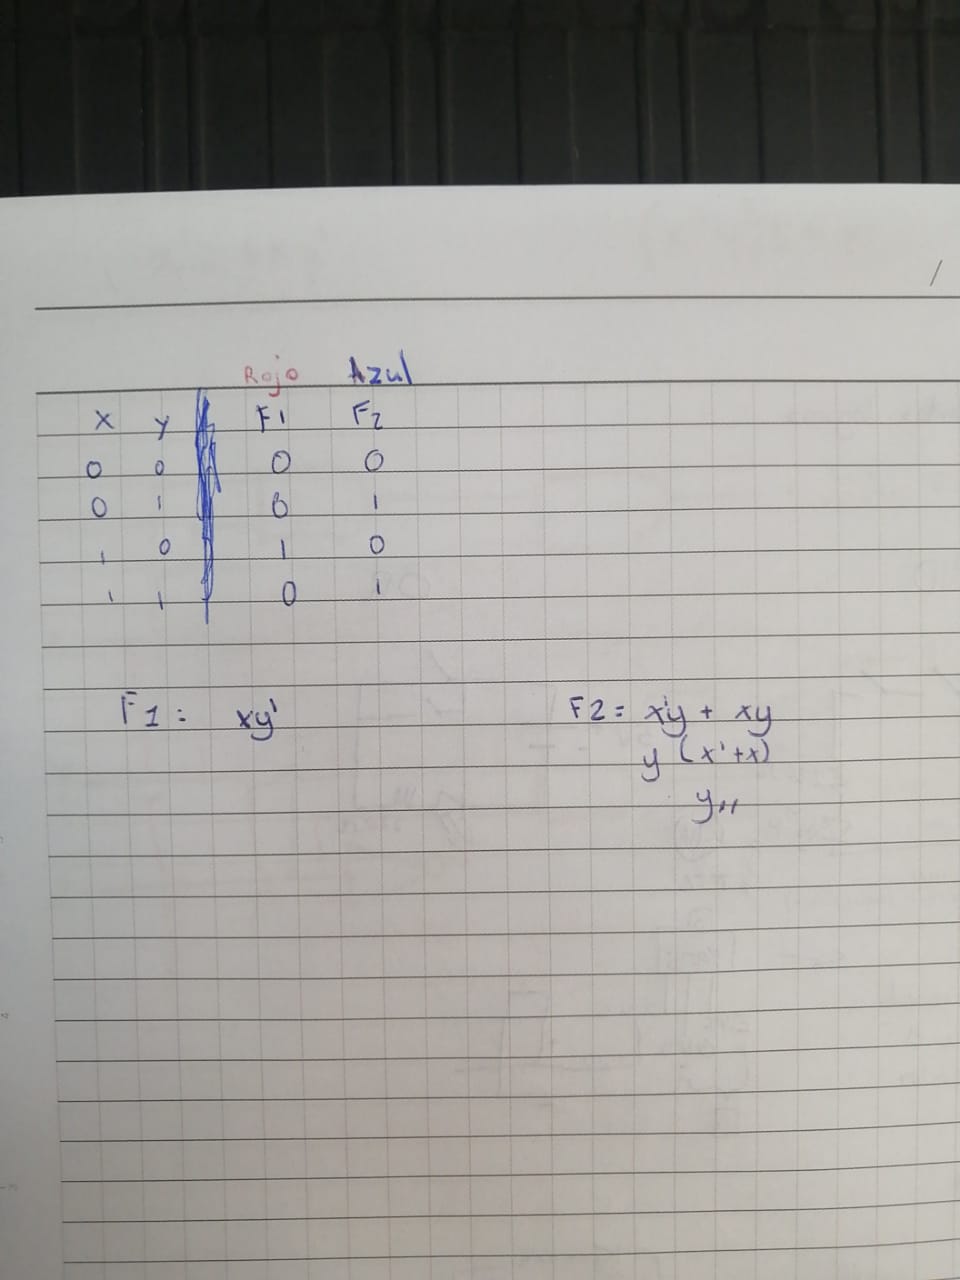 /
Rojo Azul
X Y F1 F2
0 0 0 0
0 1 0 1
1 0 1 0
1 1 0 1
F1: xy' F2= x'y + xy
y (x'+x)
y,,